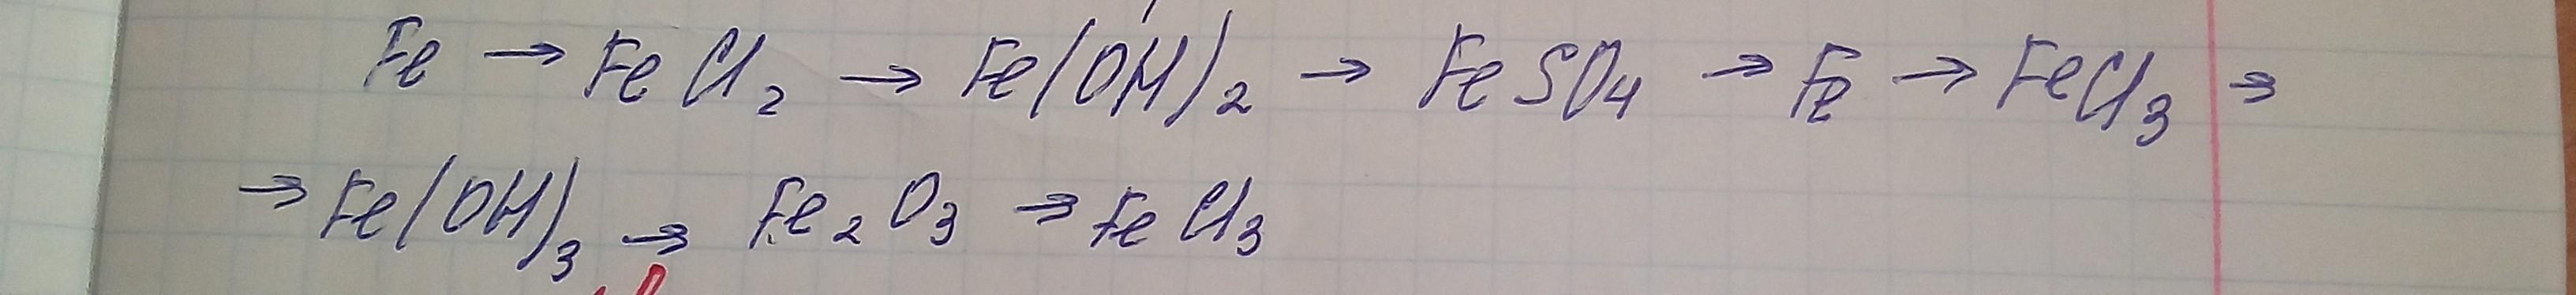 Fe → FeCl₂ → Fe(OH)₂ → FeSO₄ → Fe → FeCl₃ →
→ Fe(OH)₃ → Fe₂O₃ → FeCl₃